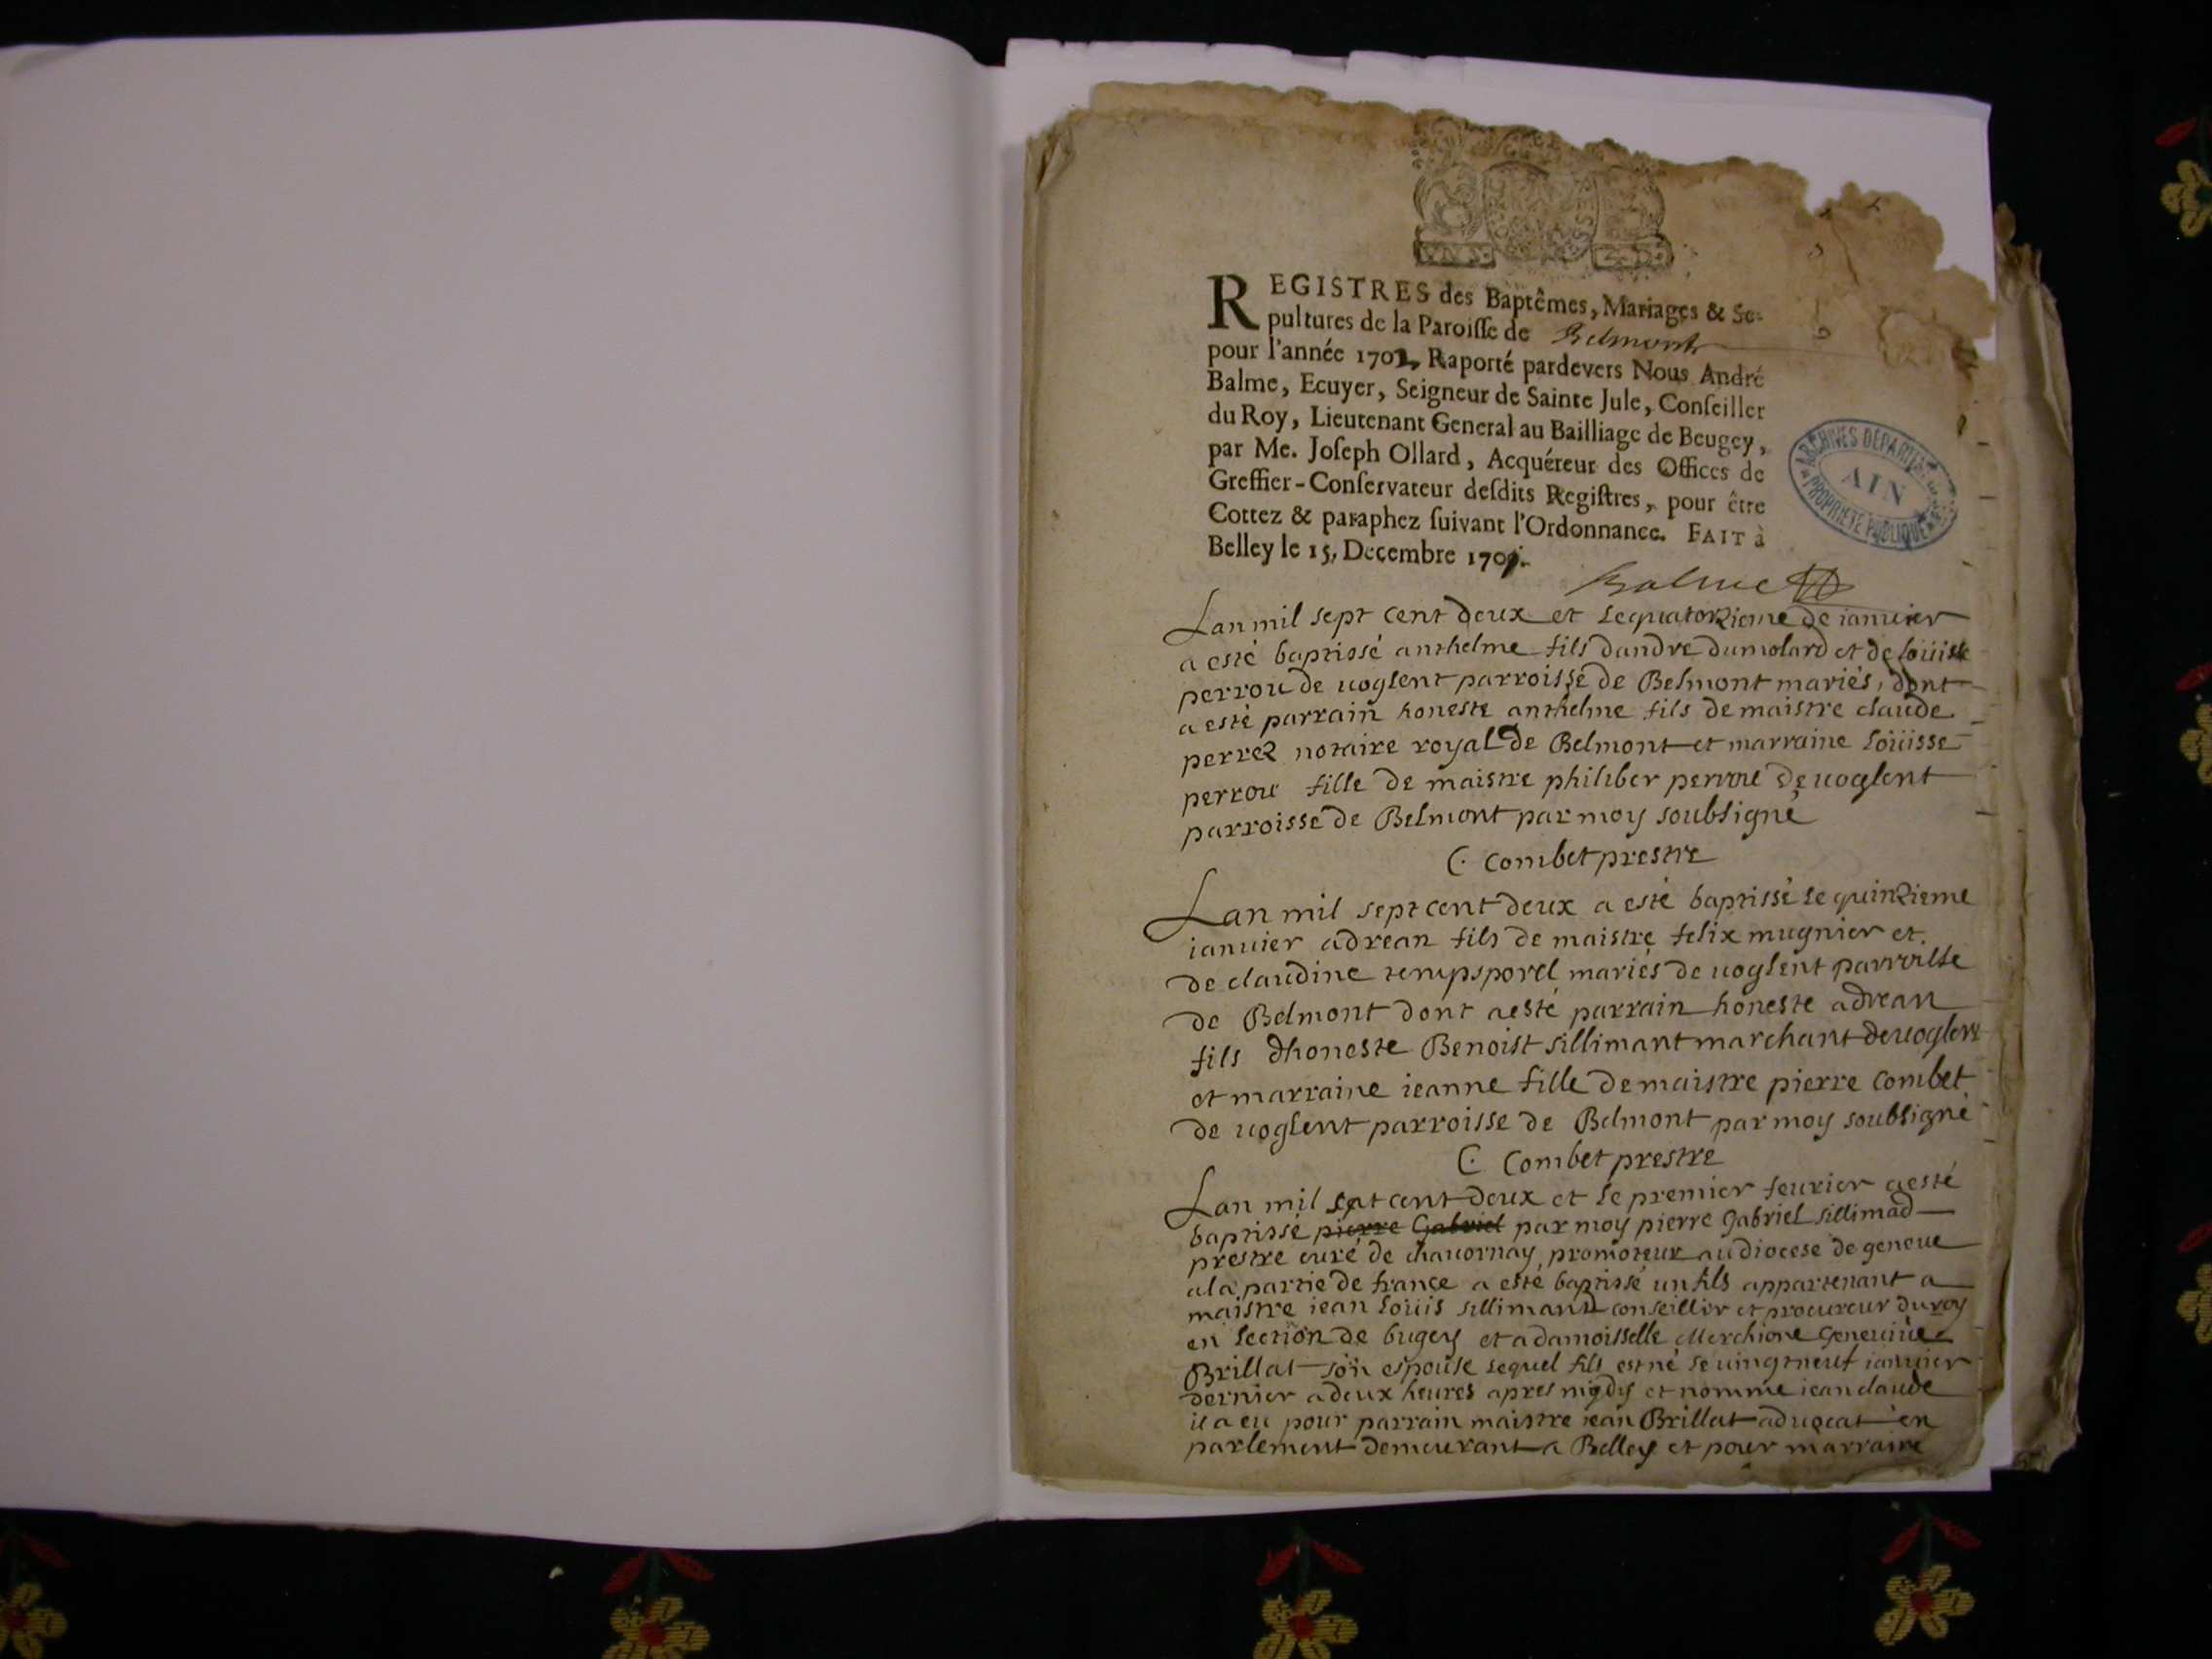 REGISTRES des Baptêmes, Mariages & Se-
pultures de la Paroisse de Belmont
pour l'année 1702, Raporté pardevers Nous André
Balme, Ecuyer, Seigneur de Sainte Jule, Conseiller
du Roy, Lieutenant General au Bailliage de Beugey,
par Me. Joseph Ollard, Acquéreur des Offices de
Greffier-Conservateur desdits Registres, pour être
Cottez & paraphez suivant l'Ordonnance. FAIT à
Belley le 15, Decembre 1701.
Balme
ARCHIVES DEPARTEMENTALES
AIN
PROPRIETE PUBLIQUE
Lan mil sept cent deux et le quatorzieme de ianuier
a esté baptissé anthelme fils dandre dumolard et de loüisse
perrou de uoglent parroisse de Belmont mariés, dont
a esté parrain honeste anthelme fils de maistre claude
perrez notaire royal de Belmont et marraine loüisse
perrou fille de maistre philiber perrou de uoglent
parroisse de Belmont par moy soubsigné
C. combet prestre
Lan mil sept cent deux a esté baptissé le quinzieme
ianuier adrean fils de maistre felix mugnier et
de claudine temps porel mariés de uoglent parroisse
de Belmont dont a esté parrain honeste adrean
fils dhoneste Benoist sillimant marchant de uoglent
et marraine ieanne fille de maistre pierre combet
de uoglent parroisse de Belmont par moy soubsigné
C. Combet prestre
Lan mil sept cent deux et le premier feurier a esté
baptissé pierre Gabriel par moy pierre gabriel sillimad
prestre curé de chauornay, promoteur au diocese de geneue
a la partie de france a esté baptissé un fils appartenant a
maistre iean loüis sillimand conseiller et procureur du roy
en lection de bugey et a damoisselle Merchione Geneuiue
Brillat son espouse lequel fils est né le uingtneuf ianuier
dernier a deux heures apres midy et nomme iean claude
il a eu pour parrain maistre iean Brillat aduocat en
parlement demeurant a Belley et pour marraine